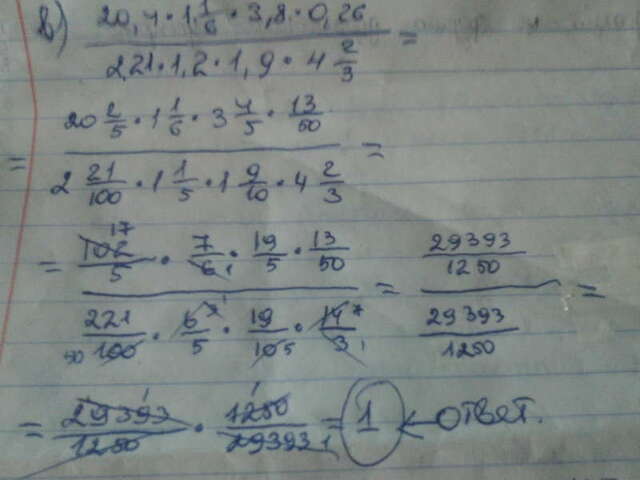 в) 20,4 · 1 1/6 · 3,8 · 0,26
2,21 · 1,2 · 1,9 · 4 2/3 =
= 20 2/5 · 1 1/6 · 3 4/5 · 13/50
2 21/100 · 1 1/5 · 1 9/10 · 4 2/3 =
= 102/5 17 · 7/6 1 · 19/5 · 13/50 = 29393/1250
221/100 50 · 6/5 · 19/10 5 · 14/3 7 1 29393/1250 =
= 29393/1250 1 · 1250/29393 1 1 = 1 ← ответ.